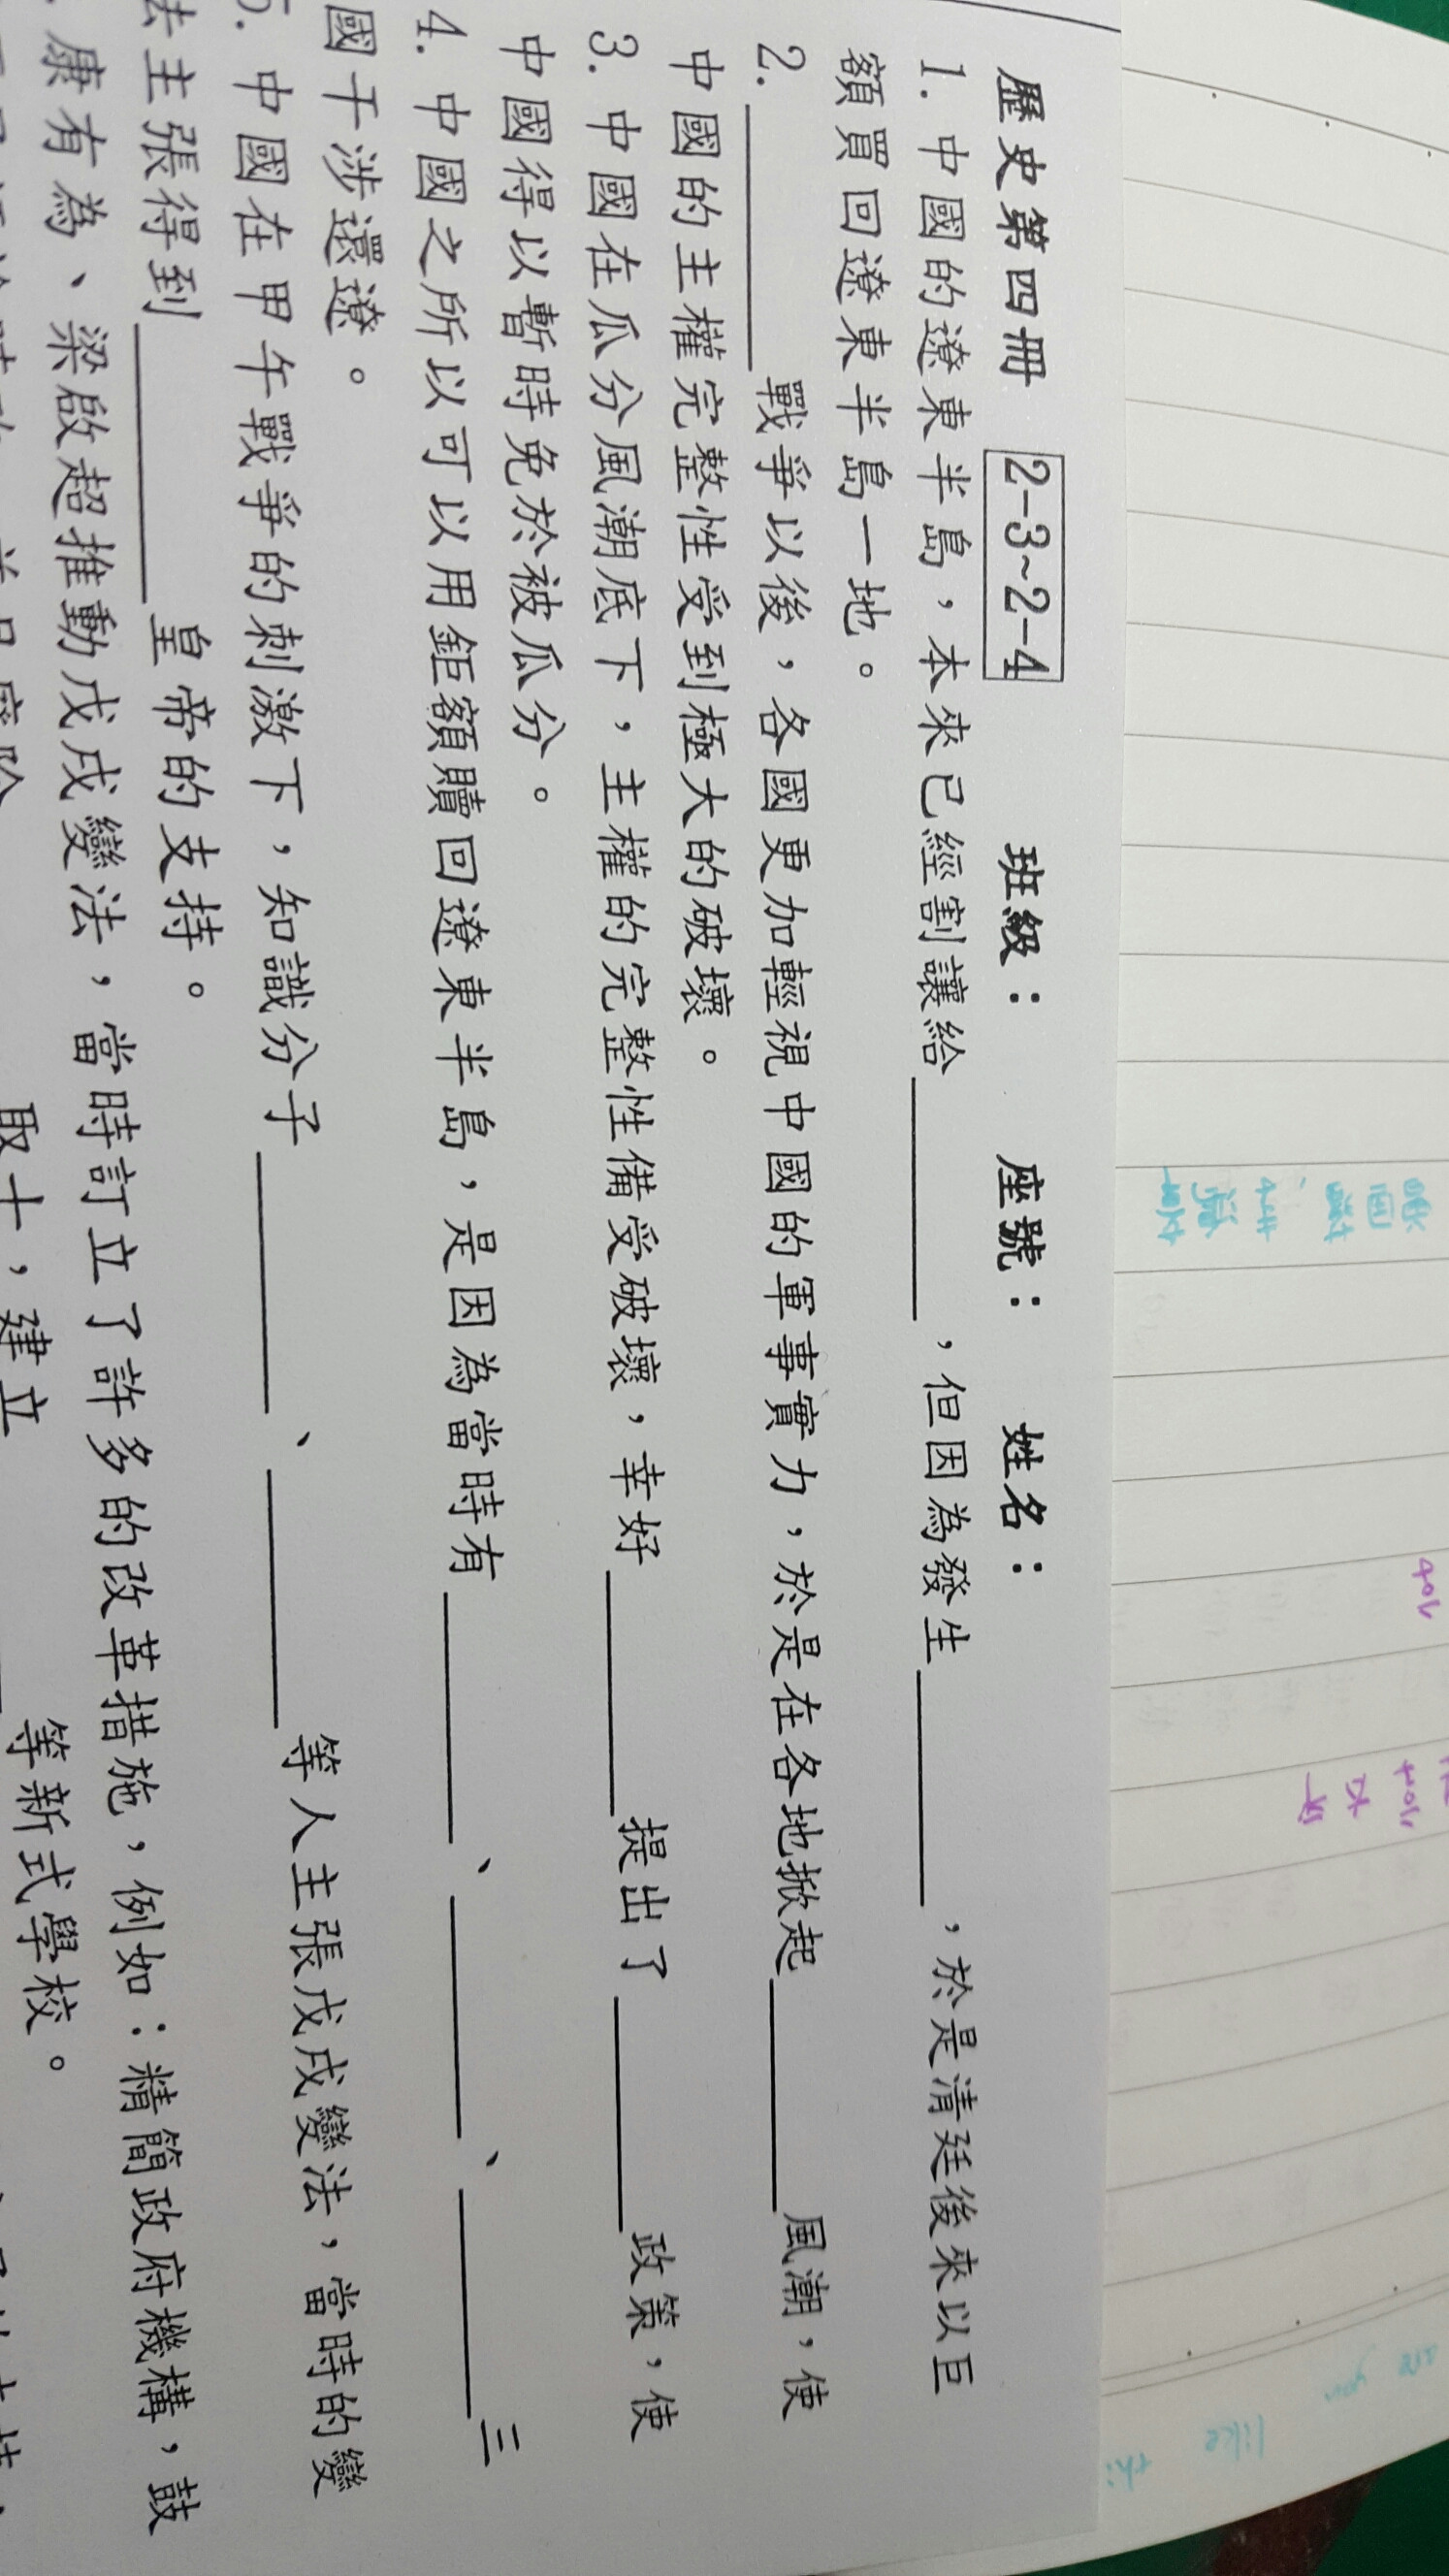 歷史第四冊 2-3~2-4 班級： 座號： 姓名：
1. 中國的遼東半島，本來已經割讓給________，但因為發生________，於是清廷後來以巨
額買回遼東半島一地。
2. ________戰爭以後，各國更加輕視中國的軍事實力，於是在各地掀起________風潮，使
中國的主權完整性受到極大的破壞。
3. 中國在瓜分風潮底下，主權的完整性備受破壞，幸好________提出了________政策，使
中國得以暫時免於被瓜分。
4. 中國之所以可以用鉅額贖回遼東半島，是因為當時有________、________、________三
國干涉還遼。
5. 中國在甲午戰爭的刺激下，知識分子________、________等人主張戊戌變法，當時的變
法主張得到________皇帝的支持。
康有為、梁啟超推動戊戌變法，當時訂立了許多的改革措施，例如：精簡政府機構，鼓
取士，建立________等新式學校。
like
you